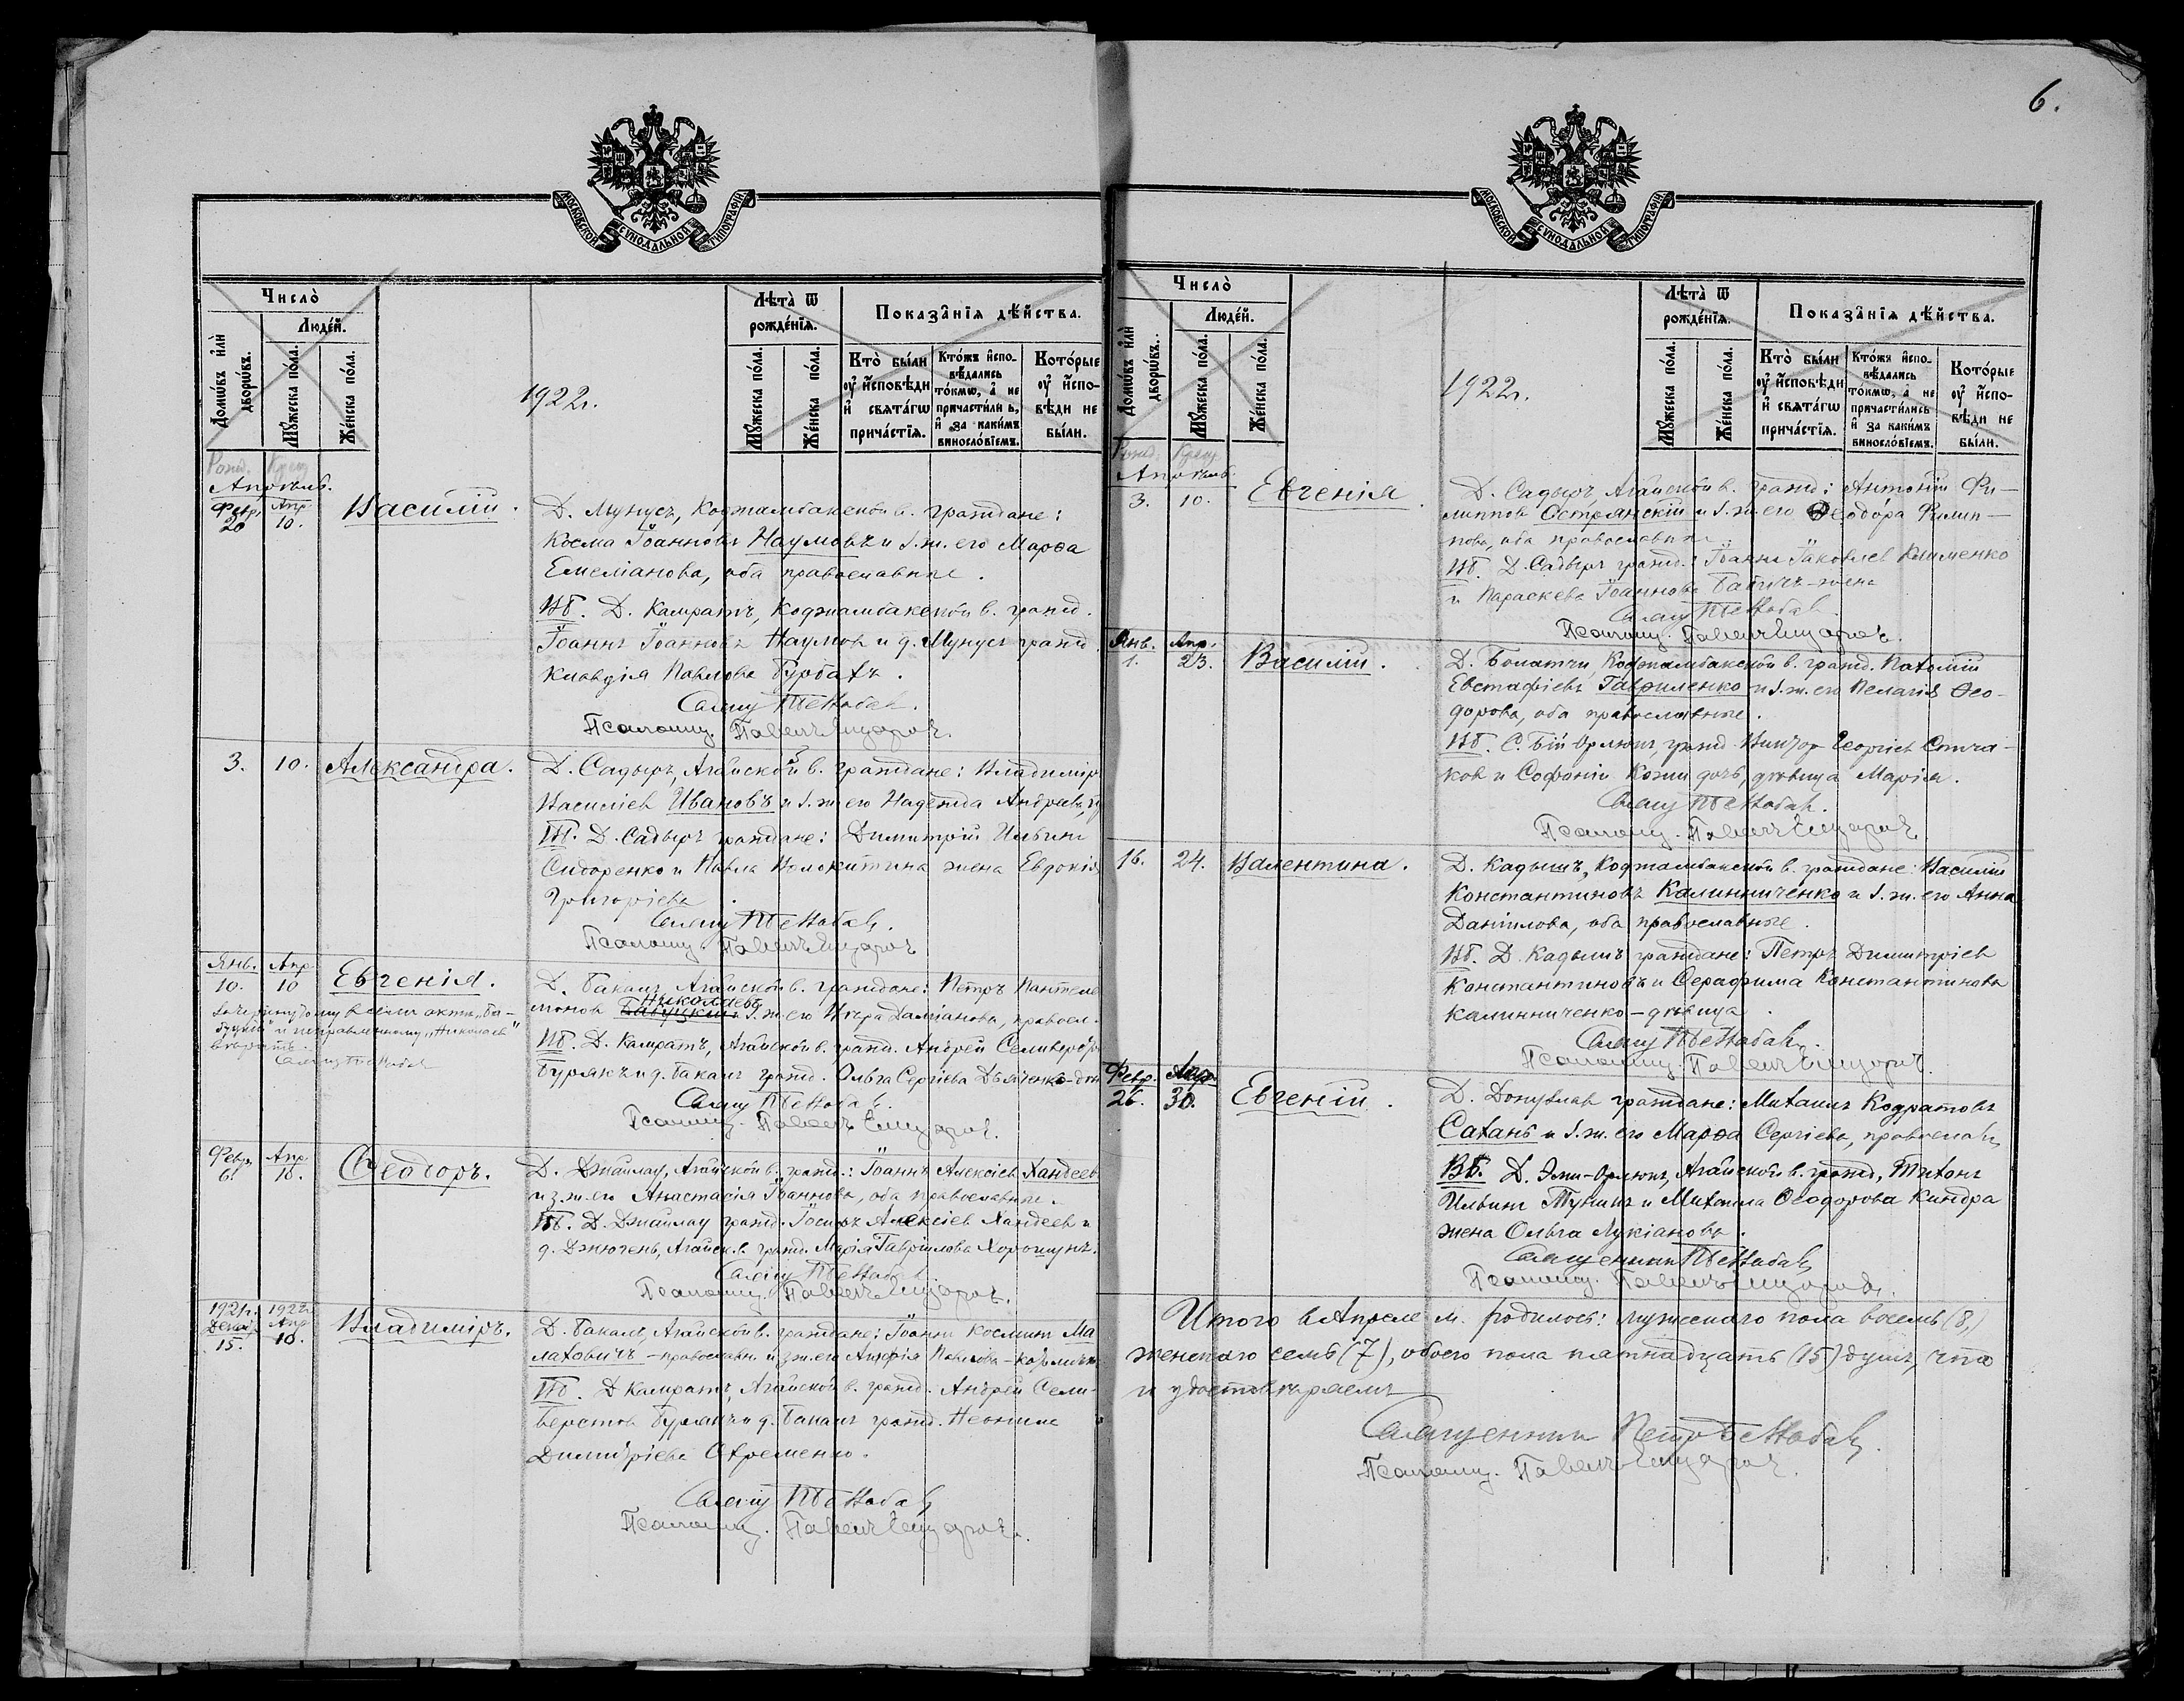 МОСКОВСКОЙ СѴНОДАЛЬНОЙ ТИПОГРАФІИ
Число̀
Людей.
Домѡвъ и҆лѝ дворѡвъ.
Мꙋжеска по́ла.
Же́нска по́ла.
1922г.
Лѣта̀ ѿ рожде́нїя.
Мꙋжеска по́ла.
Же́нска по́ла.
Показа̑нїя дѣ́йства.
Кто̀ бы́ли оу҆ и҆сповѣди и҆ свѧта́гѡ прича́стїѧ.
Кто́жъ и҆спо-
вѣ́дались
то́кмѡ, а҆ не
причасти́лись,
и҆ за каки́мъ
винослоѵ́їемъ.
Кото́рые
оу҆ и҆спо-
вѣди не
бы́ли.
Рожд. Крещ.
Апрѣль.
Февр. 20 Апр. 10. Василій.
Д. Мунусъ, Коджамбакской в. граждане:
Косма Іоанновъ Наумовъ и з.ж. его Марѳа
Емеліанова, оба православные.
ВБ. Д. Камратъ, Коджамбакской в. гражд.
Іоаннъ Іоанновъ Наумов и д. Мунусъ гражд.
Клавдія Павлова Бурбахъ.
Свящ. П Бензбаh
Псаломщ. Павелъ
3. 10. Александра.
Д. Садыръ, Агайской в. граждане: Владиміръ
Василіев Ивановъ и з.ж. его Надежда Андреева,
ВБ. Д. Садыръ граждане: Димитрій Ильинъ
Сидоренко и Павла Волокитина жена Евдокія
Григоріева
Свящ.
Псаломщ. Павелъ
Янв. 10. Апр. 10 Евгенія.
Д. Бакалъ Агайской в. граждане: Петръ Пантеле
имонов Николаевъ з.ж. его Вѣра Даміанова, правосл.
ВБ. Д. Камратъ, Агайской в. гражд. Андрей Селиверстов
Бурякъ и д. Бакалъ гражд. Ольга Сергіева Дьяченко
Свящ.
Псаломщ. Павелъ
Февр. 6. Апр. 10. Ѳеодоръ.
Д. Джайлау, Агайской в. гражд.: Іоаннъ Алексіев Хандеев
и з.ж. его Анастасія Іоаннова, оба православные.
ВБ. Д. Джайлау гражд. Іосифъ Алексіев Хандеев и
д. Джючень, Агайск. в. гражд. Марія Гавріилова Хорошунъ.
Свящ.
Псаломщ. Павелъ
1921г. Декаб. 15. 1922г. Апр. 10. Владиміръ.
Д. Бакалъ, Агайской в. граждане: Іоаннъ Космин Ма
лаховичъ - православн. и з.ж. его Анфія Павлова -
ВБ. Д Камратъ, Агайской в. гражд. Андрей Сели-
верстов Бурякъ и д. Бакалъ гражд. Неонила
Димитріева Охременко.
Свящ.
Псаломщ. Павелъ
6.
МОСКОВСКОЙ СѴНОДАЛЬНОЙ ТИПОГРАФІИ
Число̀
Людей.
Домѡвъ и҆лѝ дворѡвъ.
Мꙋжеска по́ла.
Же́нска по́ла.
1922г.
Лѣта̀ ѿ рожде́нїя.
Мꙋжеска по́ла.
Же́нска по́ла.
Показа̑нїя дѣ́йства.
Кто̀ бы́ли оу҆ и҆сповѣди и҆ свѧта́гѡ прича́стїѧ.
Кто́жъ и҆спо-
вѣ́дались
то́кмѡ, а҆ не
причасти́лись
и҆ за каки́мъ
винослоѵ́їемъ.
Кото́рые
оу҆ и҆спо-
вѣди не
бы́ли.
Рожд. Крещ.
Апрѣль
3. 10. Евгенія
Д. Садыръ, Агайской в. гражд: Антоній Фи-
липпов Острянскій и з.ж. его Ѳеодора Филип-
пова, оба православные.
ВБ. Д. Садыръ гражд. Іоаннъ Іаковлев Клименко
и Параскева Іоаннова Бабичъ - жена
Свящ.
Псаломщ. Павелъ
Янв. 1. Апр. 23. Василій.
Д. Болатчи, Коджамбакской в. гражд. Пахомій
Евстафіевъ Гавриленко и з.ж. его Пелагія Ѳео-
дорова, оба православные.
ВБ. С. Бій Орлюкъ, гражд. Викторъ Георгіев Спича-
ков и Софоніи Козии дочь, дѣвица Марія.
Свящ.
Псаломщ. Павелъ
16. 24. Валентина.
Д. Кадышъ, Коджамбакской в. граждане: Василій
Константиновъ Калинниченко и з.ж. его Анна
Даніилова, оба православные.
ВБ. Д. Кадышъ граждане: Петръ Димитріев
Константиновъ и Серафима Константинова
Калинниченко - дѣвица.
Свящ.
Псаломщ. Павелъ
Февр. 26. Апр. 30. Евгеній.
Д. Донузлав граждане: Михаилъ Кодратовъ
Сахань и з.ж. его Марѳа Сергіева, православн.
ВБ. Д. Эли-Орлюкъ, Агайской в. гражд. Тихонъ
Ильинъ Тунинъ и Михаила Ѳеодорова Киндра
жена Ольга Лукіанова.
Священникъ
Псаломщ. Павелъ
Итого в Апреле м. родилось: мужескаго пола восемь (8,)
женскаго семь (7), обоего пола пятнадцать (15) душъ, что
и удостовѣряемъ
Священникъ Петръ
Псаломщ. Павелъ